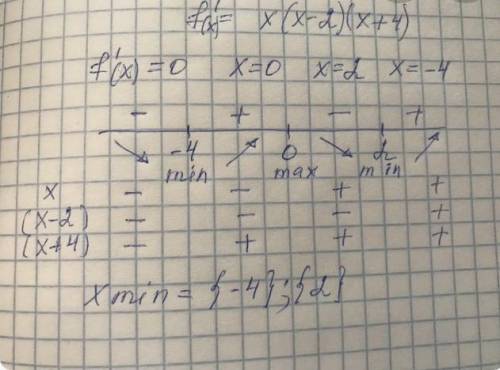 f'(x) = x(x-2)(x+4)
f'(x) = 0 x=0 x=2 x=-4
- + - +
-4 0 2
min max min
x - - + +
(x-2) - - - +
(x+4) - + + +
xmin = {-4};{2}